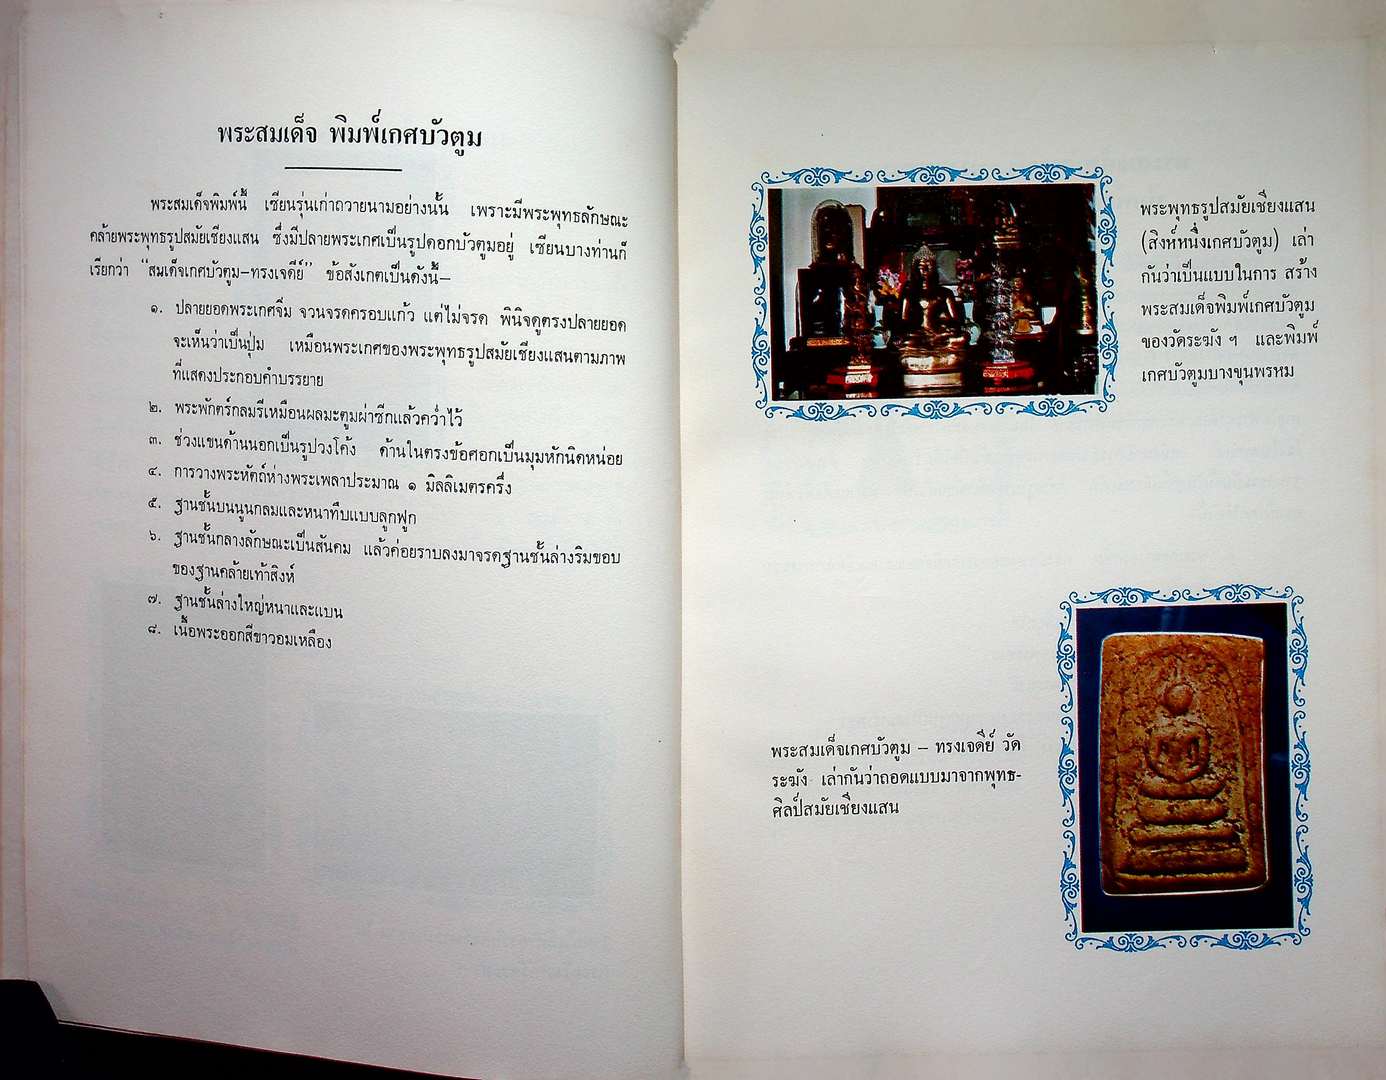 พระสมเด็จ พิมพ์เกศบัวตูม
พระสมเด็จพิมพ์นี้ เซียนรุ่นเก่าถวายนามอย่างนั้น เพราะมีพระพุทธลักษณะ
คล้ายพระพุทธรูปสมัยเชียงแสน ซึ่งมีปลายพระเกศเป็นรูปดอกบัวตูมอยู่ เซียนบางท่านก็
เรียกว่า “สมเด็จเกศบัวตูม–ทรงเจดีย์” ข้อสังเกตเป็นดังนี้–
๑. ปลายยอดพระเกศจิ่ม จวนจรดครอบแก้ว แต่ไม่จรด พินิจดูตรงปลายยอด
จะเห็นว่าเป็นปุ่ม เหมือนพระเกศของพระพุทธรูปสมัยเชียงแสนตามภาพ
ที่แสดงประกอบคำบรรยาย
๒. พระพักตร์กลมรีเหมือนผลมะตูมผ่าซีกแล้วคว่ำไว้
๓. ช่วงแขนด้านนอกเป็นรูปวงโค้ง ด้านในตรงข้อศอกเป็นมุมหักนิดหน่อย
๔. การวางพระหัตถ์ห่างพระเพลาประมาณ ๑ มิลลิเมตรครึ่ง
๕. ฐานชั้นบนนูนกลมและหนาทึบแบบลูกฟูก
๖. ฐานชั้นกลางลักษณะเป็นสันคม แล้วค่อยราบลงมาจรดฐานชั้นล่างริมขอบ
ของฐานคล้ายเท้าสิงห์
๗. ฐานชั้นล่างใหญ่หนาและแบน
๘. เนื้อพระออกสีขาวอมเหลือง
พระพุทธรูปสมัยเชียงแสน
(สิงห์หนึ่งเกศบัวตูม) เล่า
กันว่าเป็นแบบในการ สร้าง
พระสมเด็จพิมพ์เกศบัวตูม
ของวัดระฆัง ฯ และพิมพ์
เกศบัวตูมบางขุนพรหม
พระสมเด็จเกศบัวตูม – ทรงเจดีย์ วัด
ระฆัง เล่ากันว่าถอดแบบมาจากพุทธ-
ศิลป์สมัยเชียงแสน